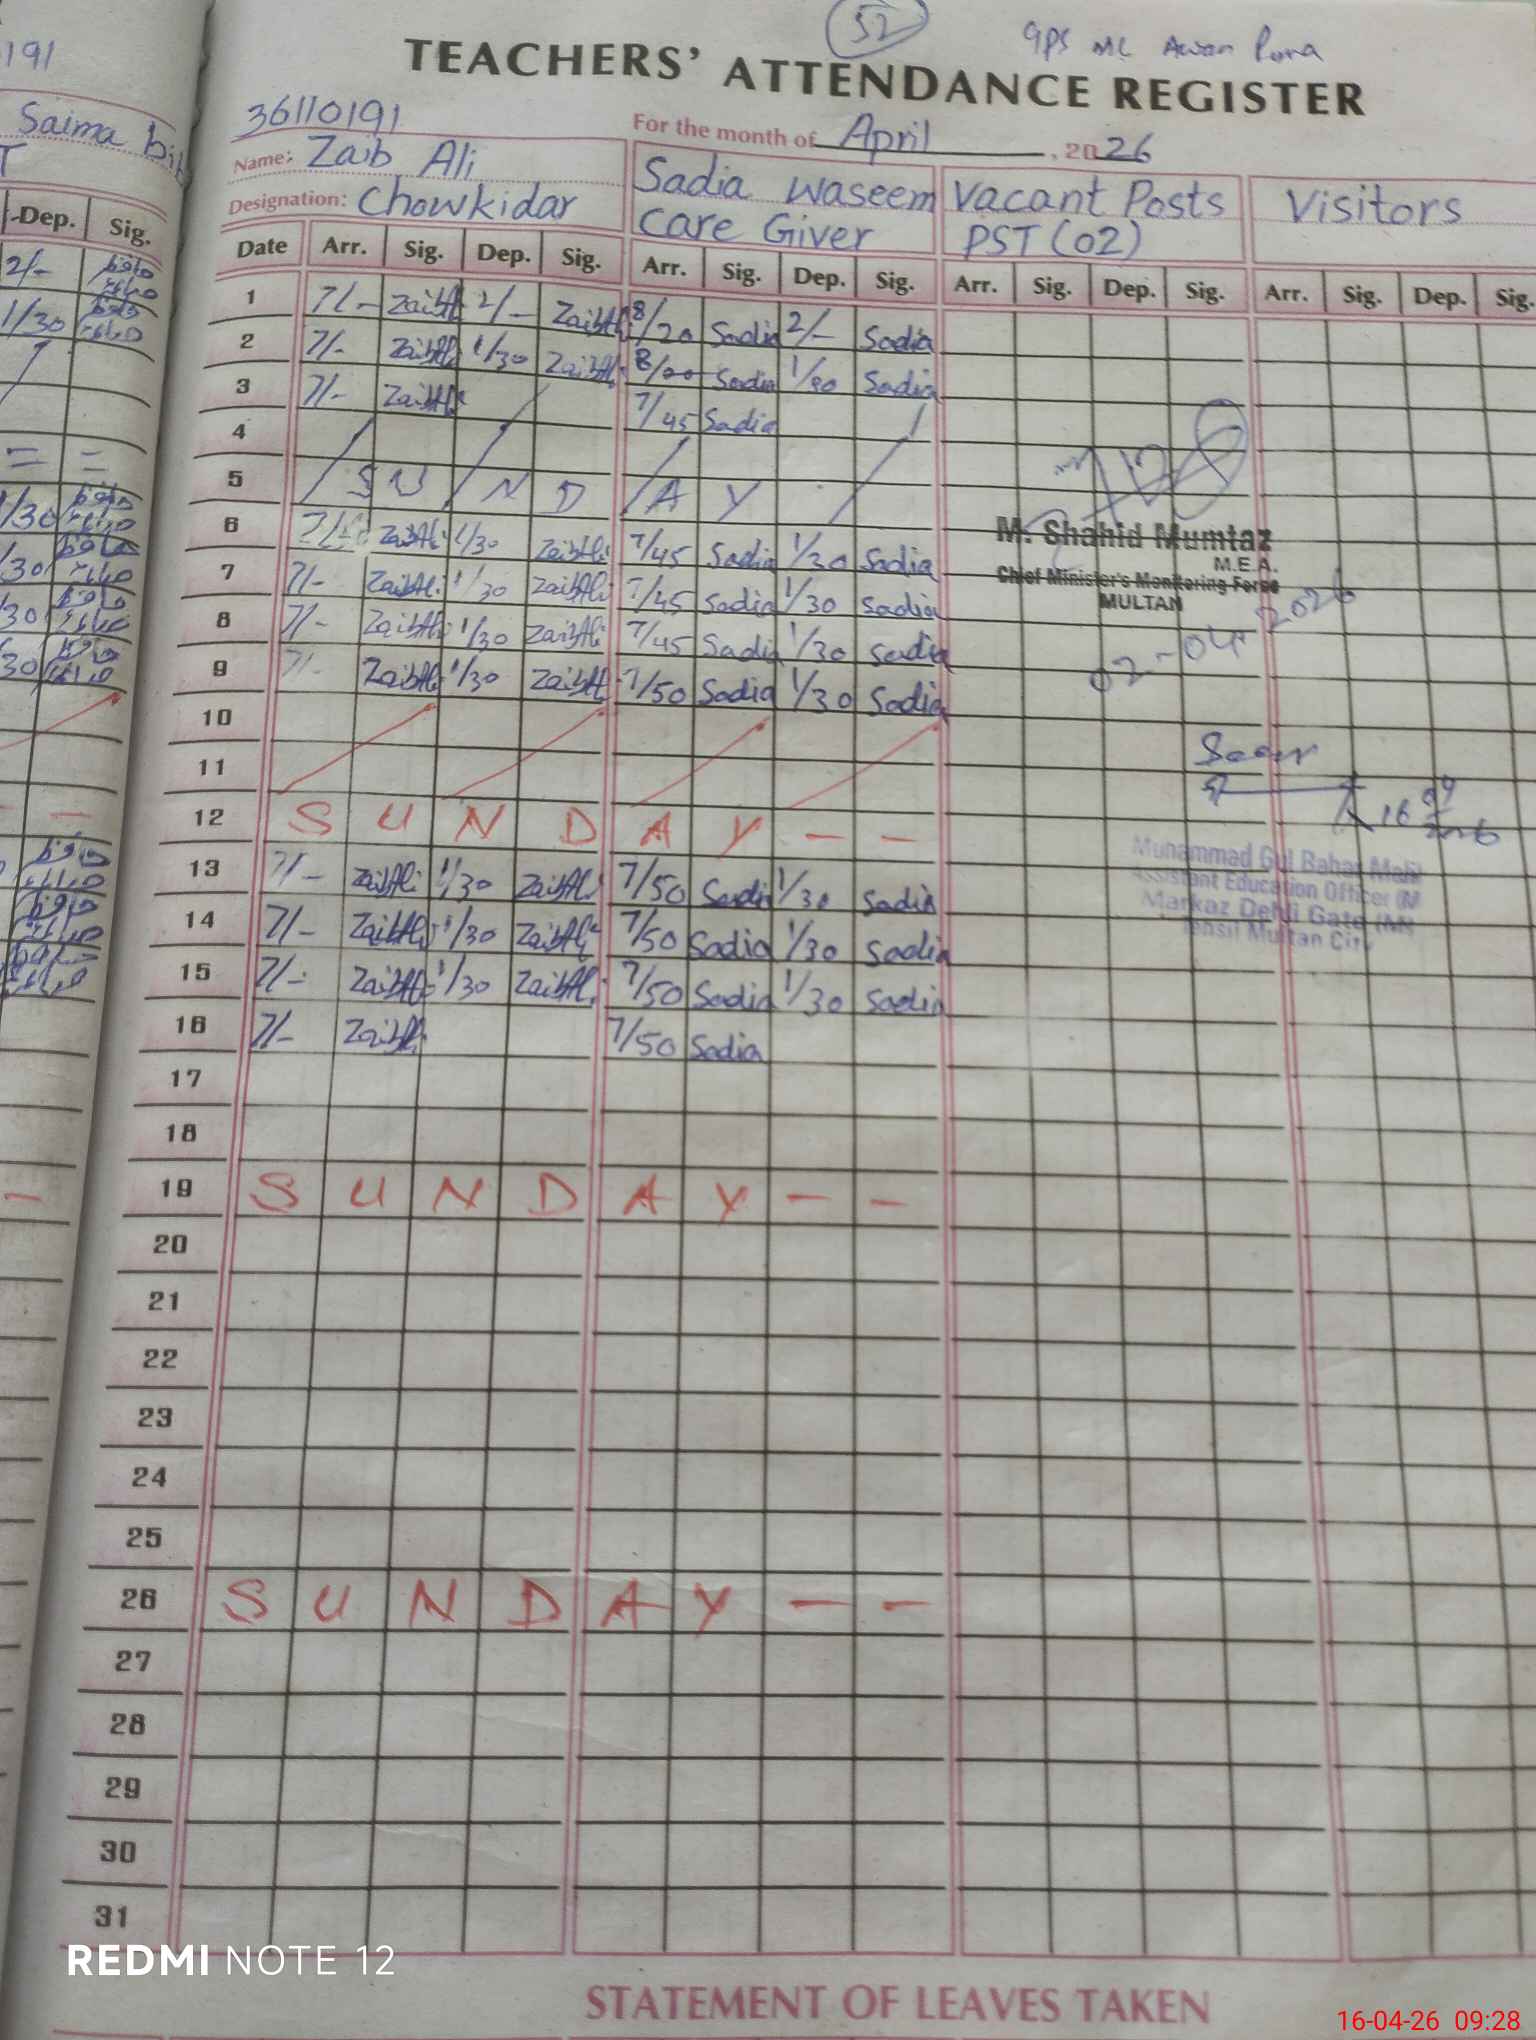 52
GPS MC Awan Pura
TEACHERS' ATTENDANCE REGISTER
36110191
For the month of April, 2026
Name: Zaib Ali
Designation: Chowkidar
Sadia Waseem
Care Giver
Vacant Posts
PST (02)
Visitors
191
Saima bi
T
Dep. Sig.
Date Arr. Sig. Dep. Sig. Arr. Sig. Dep. Sig. Arr. Sig. Dep. Sig. Arr. Sig. Dep. Sig.
1 7/- ZaibAli 2/- ZaibAli 8/20 Sadia 2/- Sadia
2 7/- ZaibAli 1/30 ZaibAli 8/00 Sadia Sadia
3 7/- ZaibAli 7/45 Sadia
4
5 S U N D A Y
6 ZaibAli 1/30 ZaibAli 7/45 Sadia 1/30 Sadia
7 7/- ZaibAli 1/30 ZaibAli 7/45 Sadia 1/30 Sadia
8 7/- ZaibAli 1/30 ZaibAli 7/45 Sadia 1/30 Sadia
9 7/- ZaibAli 1/30 ZaibAli 7/50 Sadia 1/30 Sadia
10
11
12 S U N D A Y - -
13 7/- ZaibAli 1/30 ZaibAli 7/50 Sadia 1/30 Sadia
14 7/- ZaibAli 1/30 ZaibAli 7/50 Sadia 1/30 Sadia
15 7/- ZaibAli 1/30 ZaibAli 7/50 Sadia 1/30 Sadia
16 7/- ZaibAli 7/50 Sadia
17
18
19 S U N D A Y - -
20
21
22
23
24
25
26 S U N D A Y - -
27
28
29
30
31
M. Shahid Mumtaz
M.E.A.
Chief Minister's Monitoring Force
MULTAN
02-04-2026
16 04 2026
Muhammad Gul Bahar
Assistant Education Officer (M
Markaz Dehli Gate
Tehsil Multan City
REDMI NOTE 12
STATEMENT OF LEAVES TAKEN
16-04-26 09:28